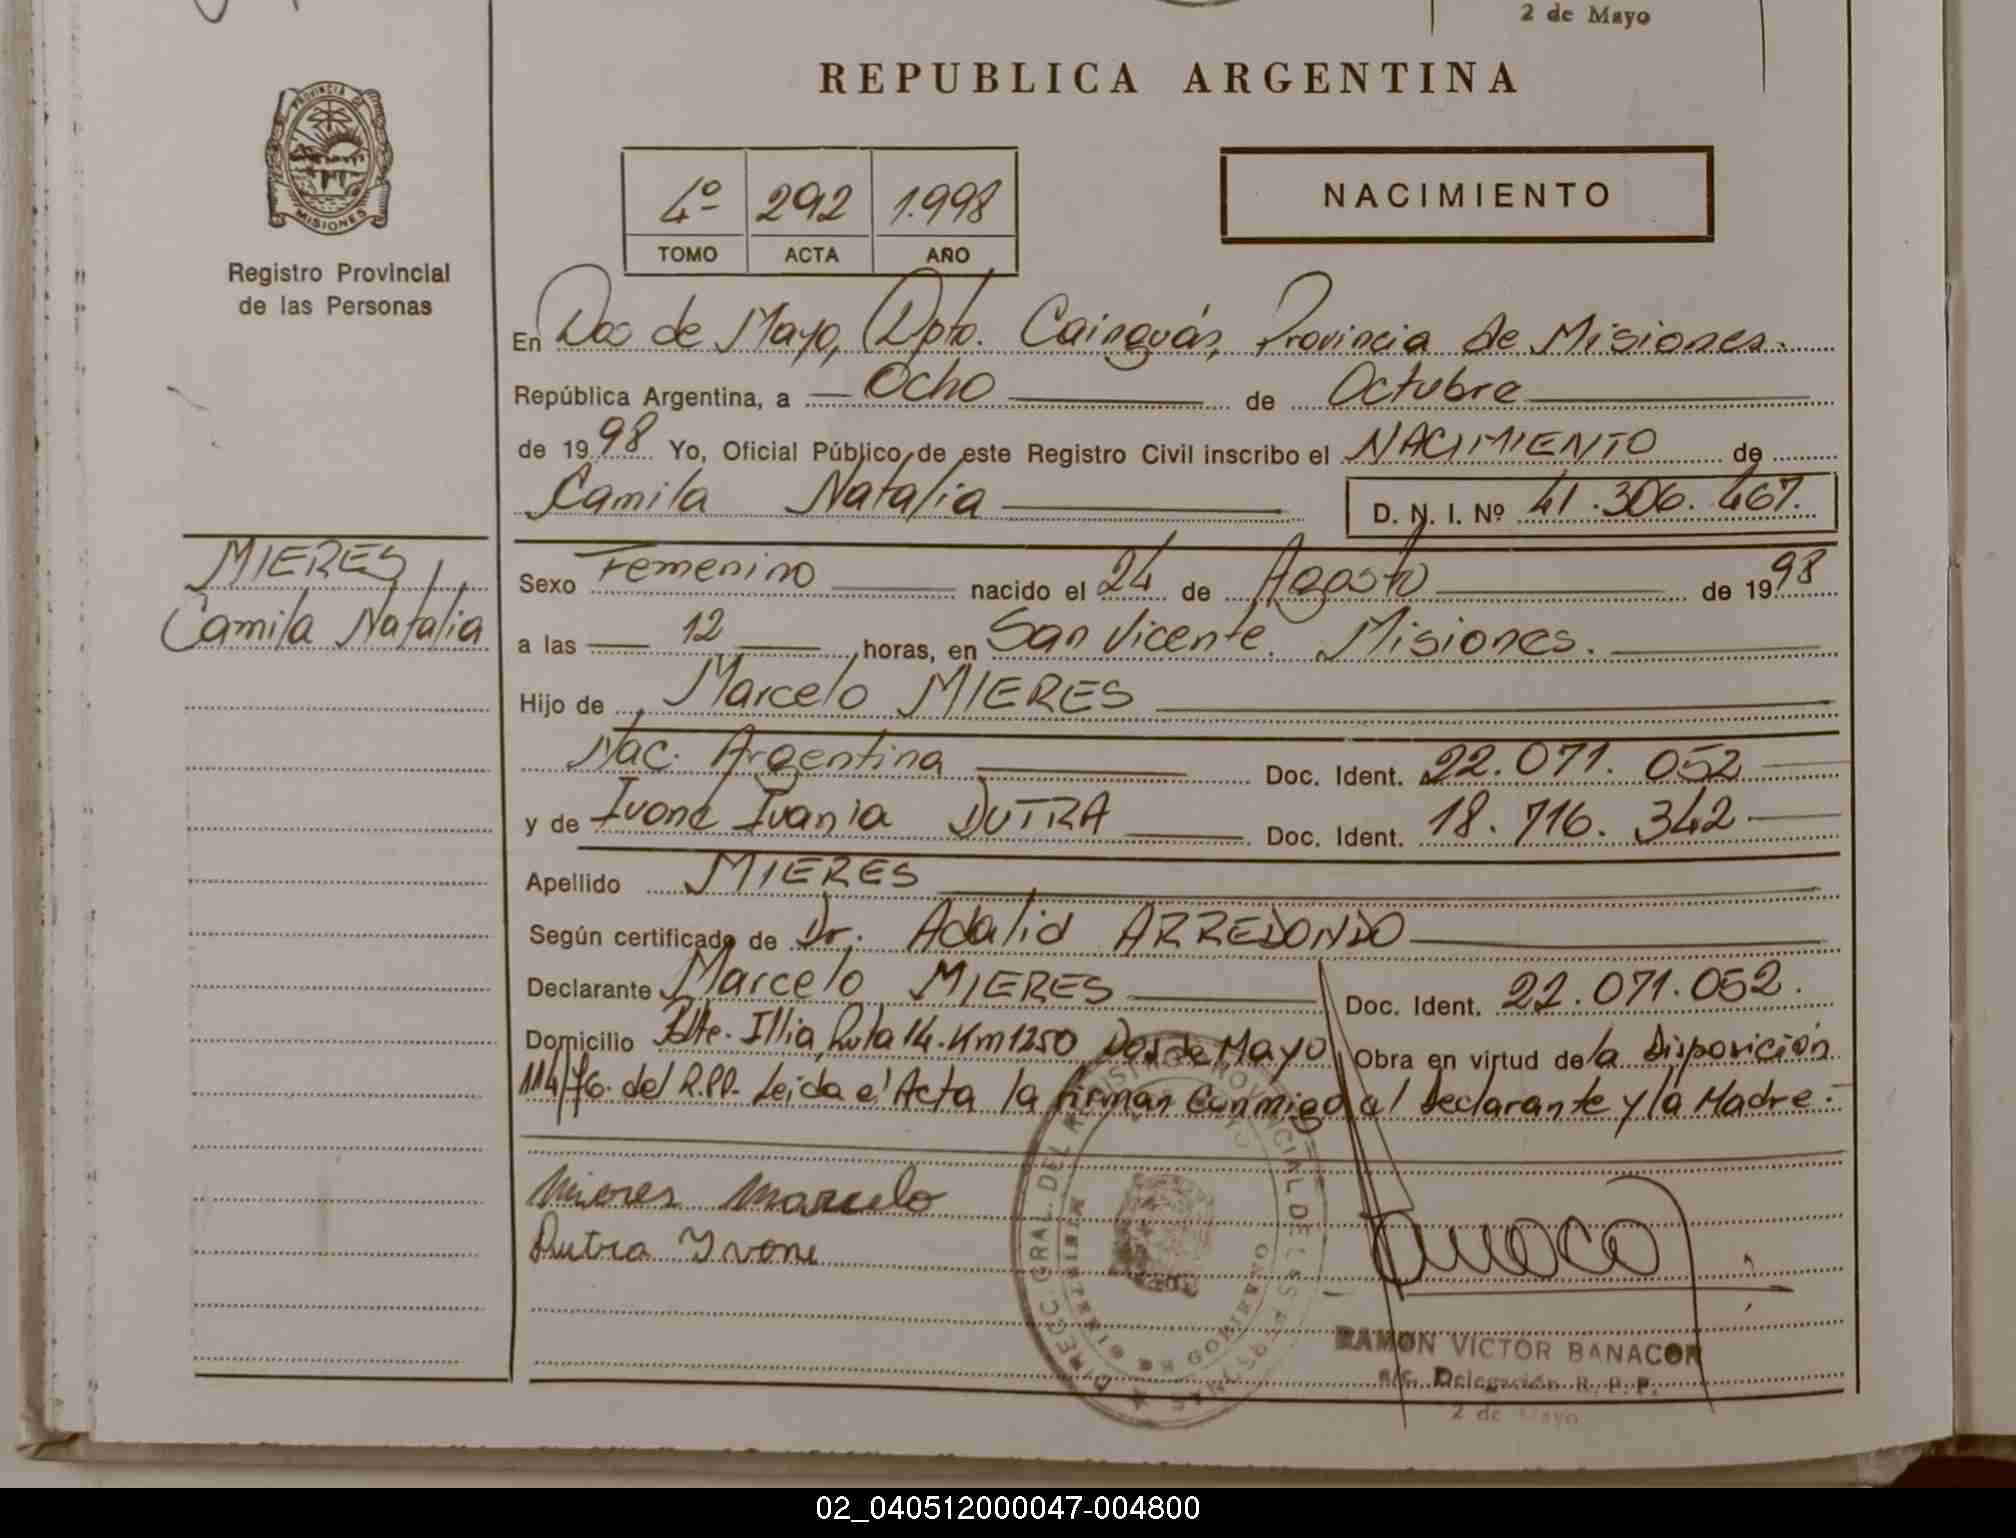 2 de Mayo
REPUBLICA ARGENTINA
PROVINCIA DE
MISIONES
Registro Provincial
de las Personas
4º 292 1.998
TOMO ACTA AÑO
NACIMIENTO
En Dos de Mayo, Dpto. Cainguás, Provincia de Misiones.
República Argentina, a Ocho de Octubre
de 1998 Yo, Oficial Público de este Registro Civil inscribo el NACIMIENTO de
Camila Natalia D. N. I. Nº 41.306.467.
MIERES,
Camila Natalia
Sexo Femenino nacido el 24 de Agosto de 1998
a las 12 horas, en San Vicente. Misiones.
Hijo de Marcelo MIERES
Nac. Argentina Doc. Ident. 22.071.052
y de Ivone Ivania DUTRA Doc. Ident. 18.716.342
Apellido MIERES
Según certificado de Dr. Adalid ARREDONDO
Declarante Marcelo MIERES Doc. Ident. 22.071.052.
Domicilio Pdte. Illia, Ruta 14. Km 1250 Dos de Mayo Obra en virtud de la Disposición
114/76. del R.PP. Leida el Acta la firman conmigo el declarante y la Madre.-
Mieres Marcelo
Dutra Ivone
DIRECC. GRAL. DEL REGISTRO PROVINCIAL DE LAS PERSONAS
MINISTERIO DE GOBIERNO
RAMON VICTOR BANACOR
a/c. Delegación R. P. P.
2 de Mayo
02_040512000047-004800